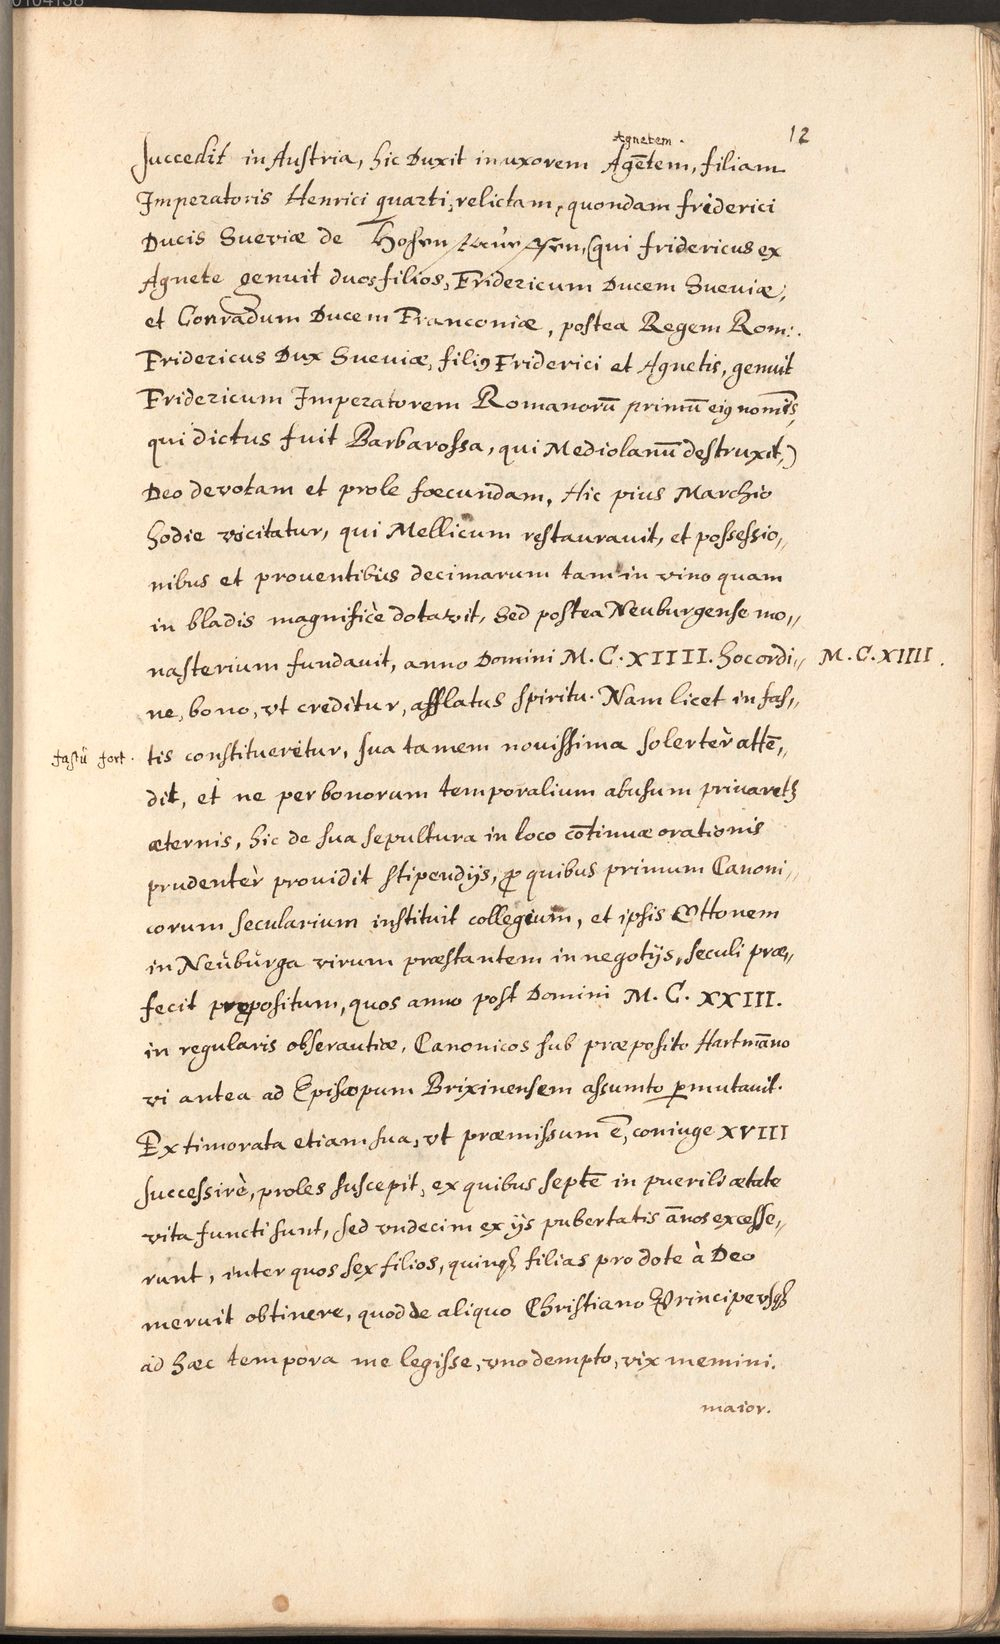 12
Agnetem.
succedit in Austria, hic Duxit in uxorem Agētem, filiam
Imperatoris Henrici quarti, relictam, quondam friderici
Ducis Sueviæ de Hohen (qui fridericus ex
Agnete genuit duos filios, Fridericum Ducem Sueviæ,
et Conradum Ducem Franconiæ, postea Regem Rom:.
Fridericus Dux Sueviæ, filiꝰ Friderici et Agnetis, genuit
Fridericum Imperatorem Romanorū primū eiꝰ nomīs,
qui dictus fuit Barbarossa, qui Mediolanū destruxit,)
Deo devotam et prole fœcundam, Hic pius Marchio
hodie vocitatur, qui Mellicum restaurauit, et possessio,,
nibus et prouentibus decimarum tam in vino quam
in bladis magnificè dotavit, Sed postea Neuburgense mo,,
nasterium fundauit, anno Domini M.C.XIIII. hoc ordi,, M.C.XIIII.
ne, bono, vt creditur, afflatus spiritu. Nam licet in fas,,
fastū fort. tis constitueretur, sua tamem nouissima solertèr attē,,
dit, et ne per bonorum temporalium abusum priuaretꝫ
æternis, hic de sua sepultura in loco cōtinuæ orationis
prudentèr prouidit stipendijs, ꝓ quibus primum Canoni,,
corum secularium instituit collegium, et ipsis Ottonem
in Neüburga virum præstantem in negotijs, seculi præ,,
fecit prępositum, quos anno post Domini M.C.XXIII.
in regularis obserautiæ, Canonicos sub præposito Hartmāno
vi antea ad Episcopum Brixinensem assumto ꝑmutauit.
Ex timorata etiam sua, vt præmissum ē, coniuge XVIII
successivè, proles suscepit, ex quibus septē in puerili ætate
vita functi sunt, sed vndecim ex ijs pubertatis ānos excesse,,
runt, inter quos sex filios, quinqꝫ filias pro dote à Deo
meruit obtinere, quod de aliquo Christiano Principe vsqꝫ
ad hæc tempora me legisse, vno dempto, vix memini.
maior.